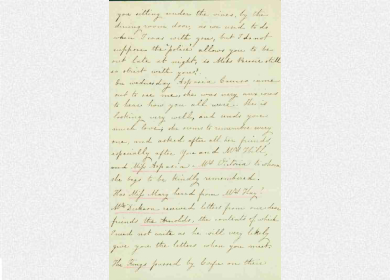 you sitting under the vines, by the
dining room door, as we used to do
when I was with you, but I do not
suppose the police allows you to be
out late at night, is Miss still
so strict with you?
On wednesday Aspasia came
out to see me, she was very anxious
to know how you all were. She is
looking very well, and sends you
much love, she seems to remember every
one, and asked after all her friends,
especially after you and Mrs Hill,
and Miss Aspasia - Miss Victoria to whom
she begs to be kindly remembered.
Has Miss Mary heard from Mrs
Mr received letters from
friends the the contents of which
I need not write as he will very likely
give you the letters when you meet.
The Kings passed by on their